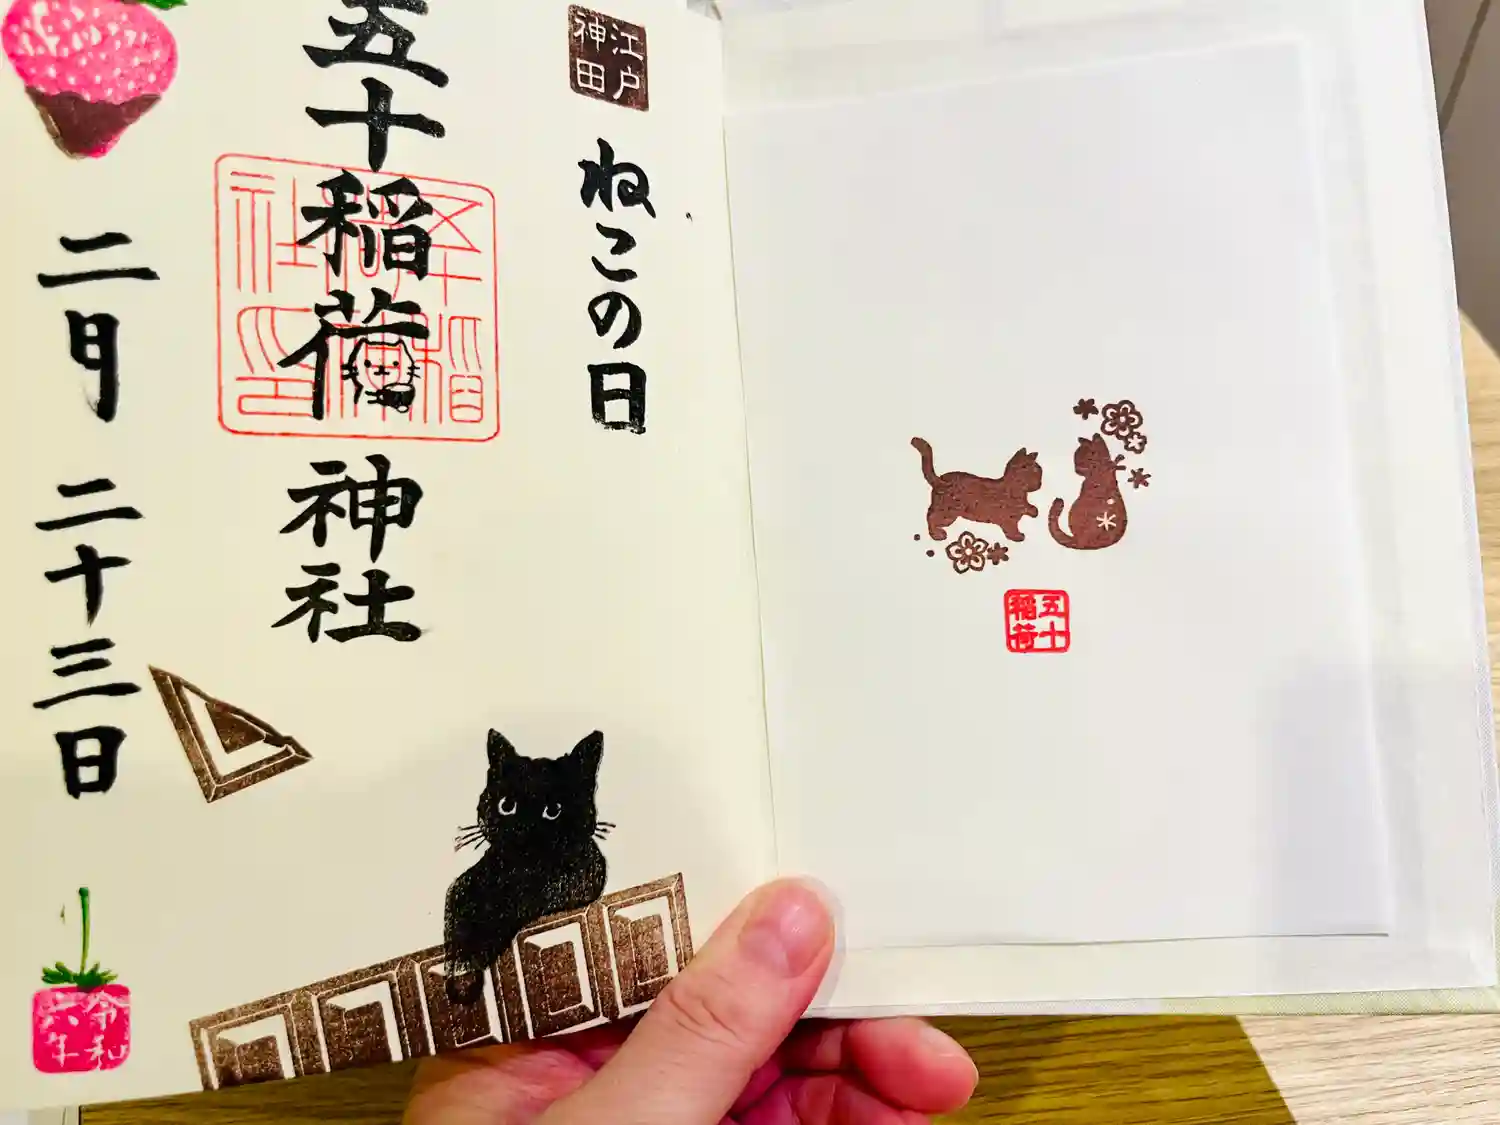 江戸
神田
ねこの日
五十稲荷神社
二月二十三日
令和
六年
五十
稲荷